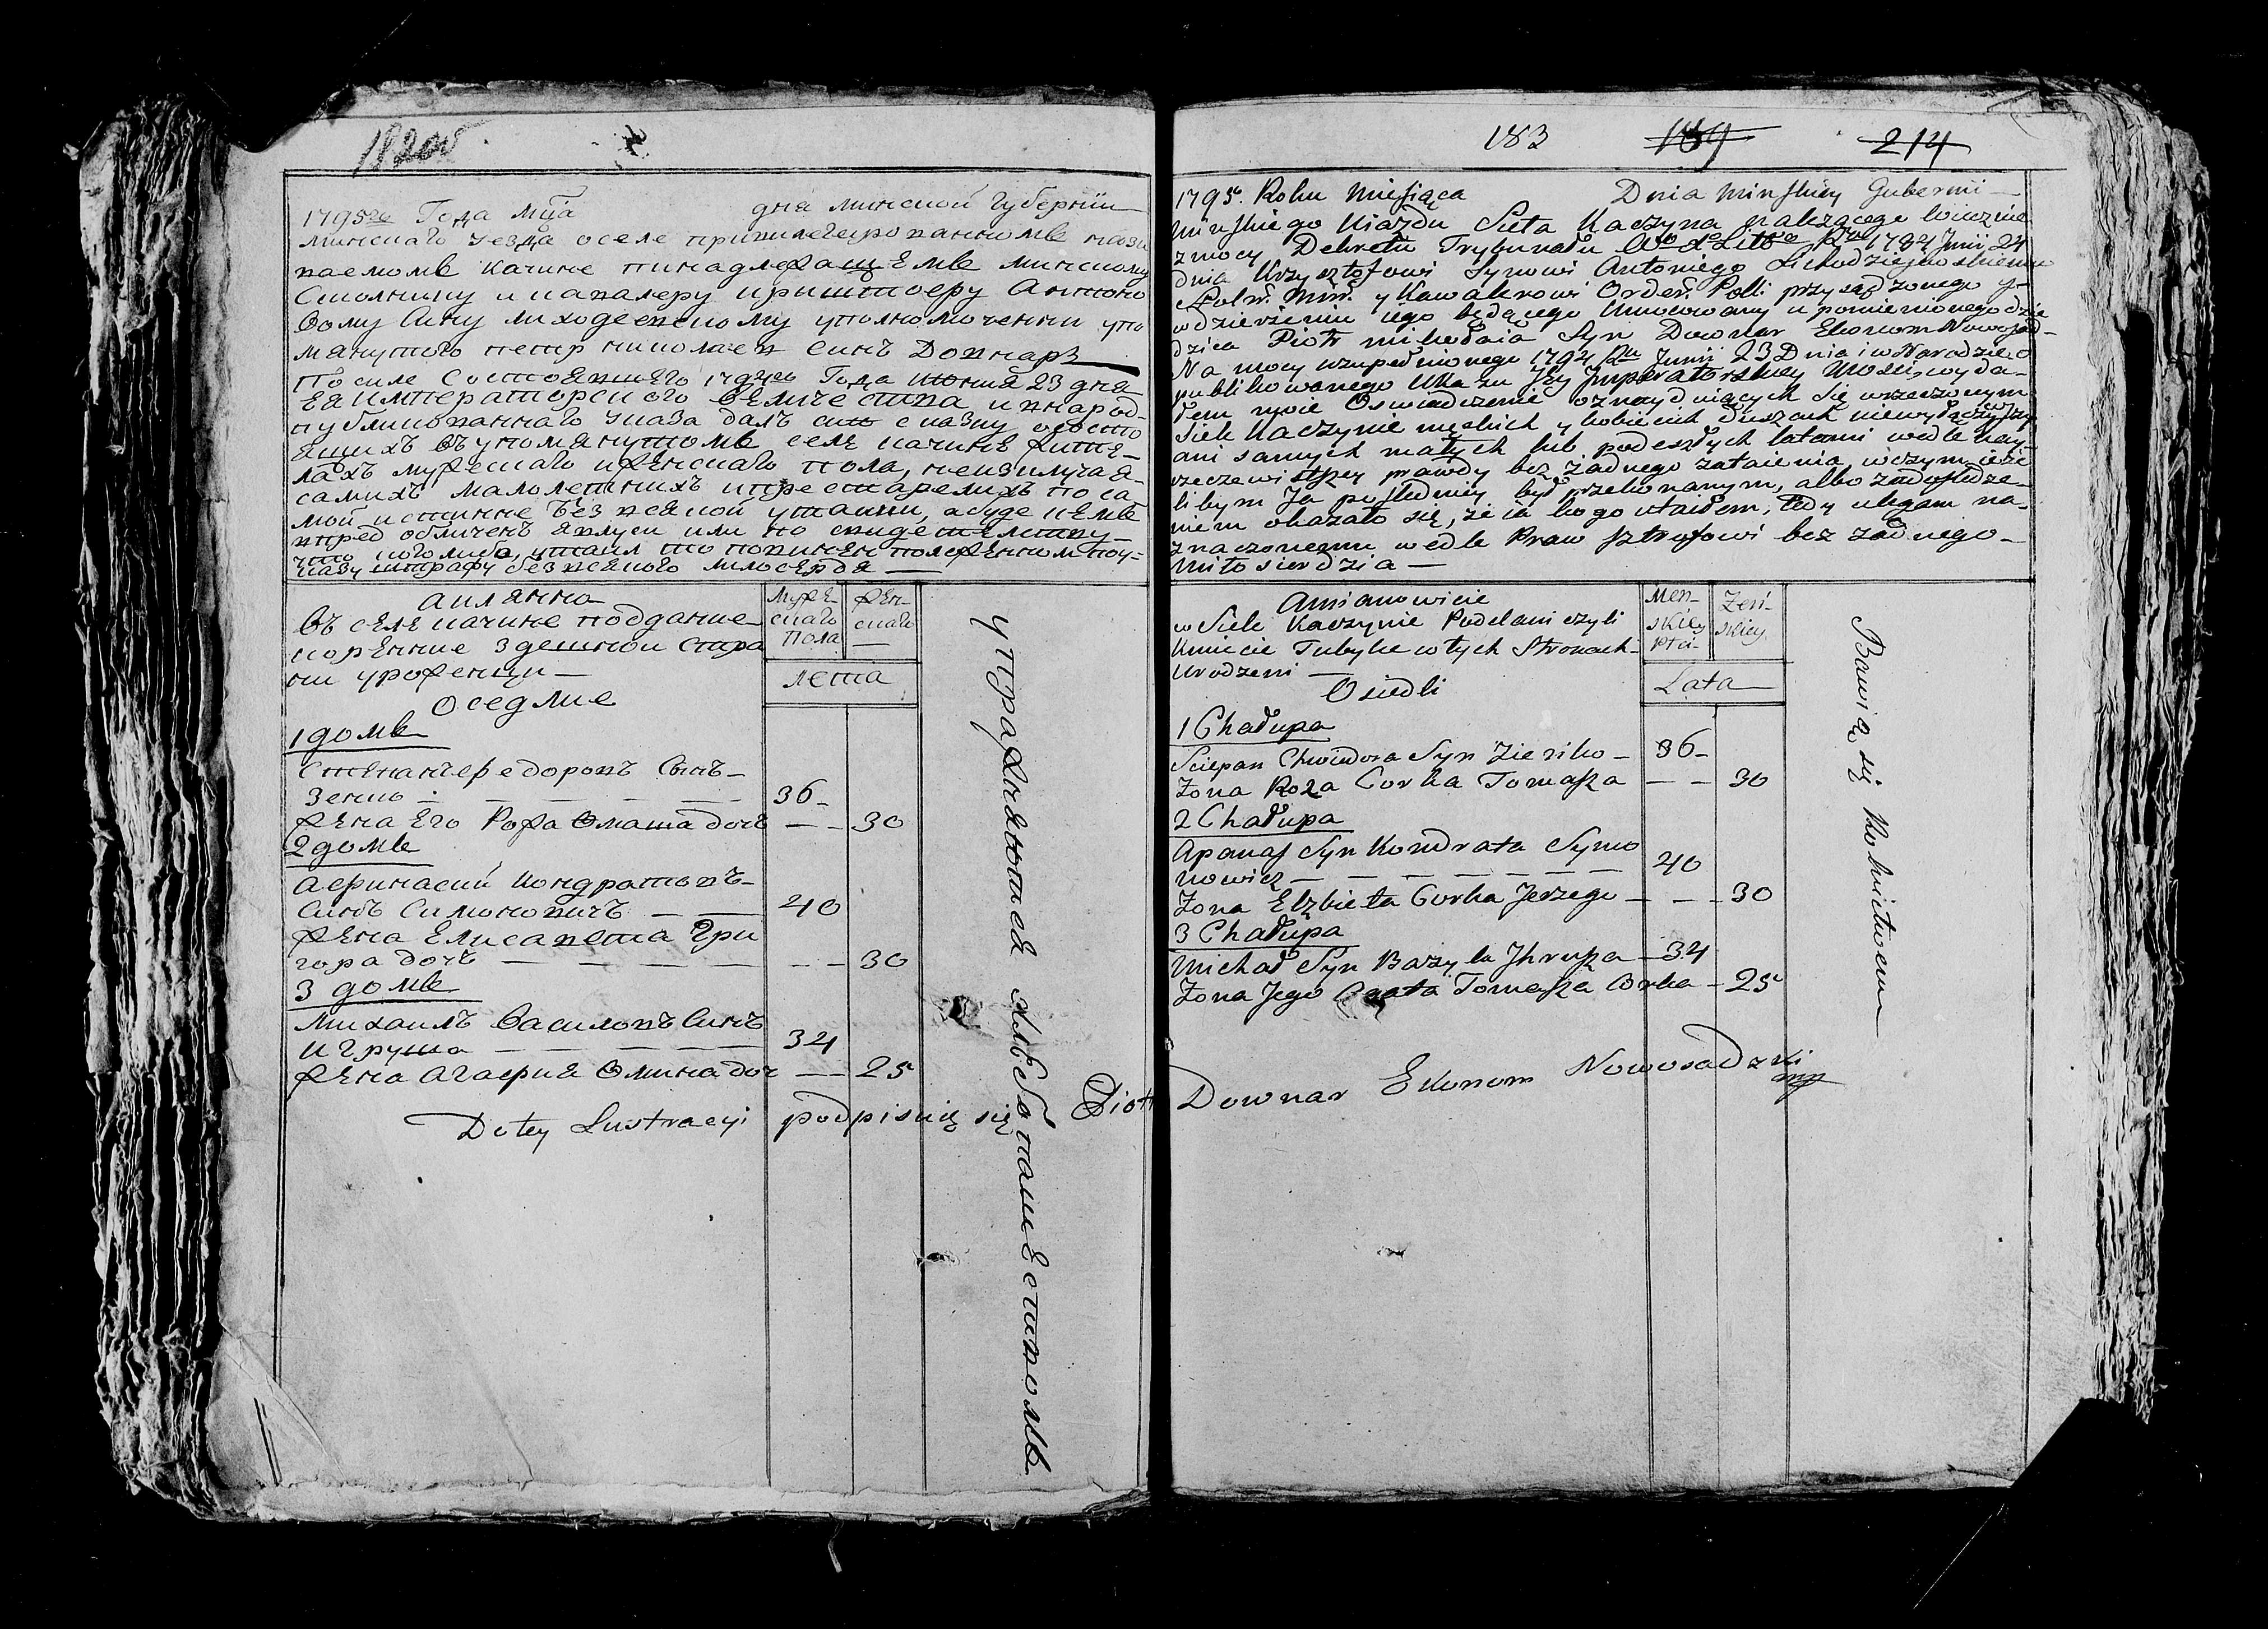 182об
1795го Года Мца дня минской Губернии
минскаго уезда о селе привилегерованномъ назы
ваемомъ Качине принадлежащемъ минскому
Столнику и кавалеру криштоеру Антоно
вому Сину лиходеевскому уполномоченни упо
мянутого петр николаев синъ Довнаръ
По силе Состоявшего 1794го Года июния 23 дня
ея императорского величества и внарод
публикованнаго указа далъ сию сказку о состо
ящихъ въ упомянутомъ селе качине жите-
лахъ мужескаго и женскаго пола, неизключая
самихъ малолетнихъ и престарелихъ по са
мой истинне без всякой утайки, а буде кемъ
впред обличенъ явлуси или по свидетелству
что кого либо утаил то повинен положенном поу-
казу штрафу без всякого милосердя
а имянно
въ селе качине подданние
коренние здешной стра
ни уроженци
Оседлие
Муже-
скаго
Пола
жен-
скаго
лета
1 домъ
Степан федоровъ Синъ
Зенко 36
жена Его Рожа Омаша доч 30
2 домъ
Афинасий Кондратовъ
Синъ Симоновичъ 40
жена Елисавета Гри
гора дочъ 30
3 домъ
Михаилъ Василовъ Синъ
Игруша 34
жена Агафия Омина доч 25
упражняются хлебопашественомъ
Do tey Lustracyi podpisuię się Piotr
183 189 214
1795. Roku Miesiąca Dnia Minskiey Gubernii
Minskiego Uiazdu Sieła Kaczyna należącego wiecznie
z mocy Dekretu Trybunału 1784 Junii 24
dnia Krzysztofowi Synowi Antoniego Lichodziejewskiemu
Stoln. Miń. y Kawalerowi Order. Polk przysądzonego y
w dzierżeniu iego będącego Umocowany u pomienionego dzie
dzica Piotr Mikołaia Syn Downar Ekonom Nowosad-
Na mocy wzupełnionego 1794 Junii 23 Dnia i w Narodzie o
publikowanego Ukazu Jey Imperatorskiey Mości, wyda-
łem nysie Oswiadczenie oznaydujących się wrzeczonym
Siele Kaczynie męskich y kobiecich duszach niewyłączaiąc
ani samych małych lub podeszłych latami wedle nay-
rzeczewistszey prawdy bez żadnego zataienia w czym ieże
libym Ja posledniey był przekonanym, albo zaposledze-
niem okazało się, że ia kogo utaiłem, tedy ulegam na-
znaczonemu wedle Praw sztrafowi bez żadnego
Miłosierdzia
Amianowicie
w Siele Kaczynie Poddani czyli
Kmiecie Tubylce w tych Stronach
Urodzeni
Osiedli
Men-
skiey
Płci
Zeń-
skiey
Lata
1 Chałupa
Sciepan Chwiedora Syn Zieńko 36
Zona Roza Corka Tomasza 30
2 Chałupa
Apanas Syn Kondrata Symo
nowicz 40
Zona Elżbieta Corka Jerzego 30
3 Chałupa
Michał Syn Bazyla Jhrusza 34
Zona Jego Agata Tomasza Corka 25
Bawią się Rolnictwem
Downar Ekonom Nowosadzki
mp